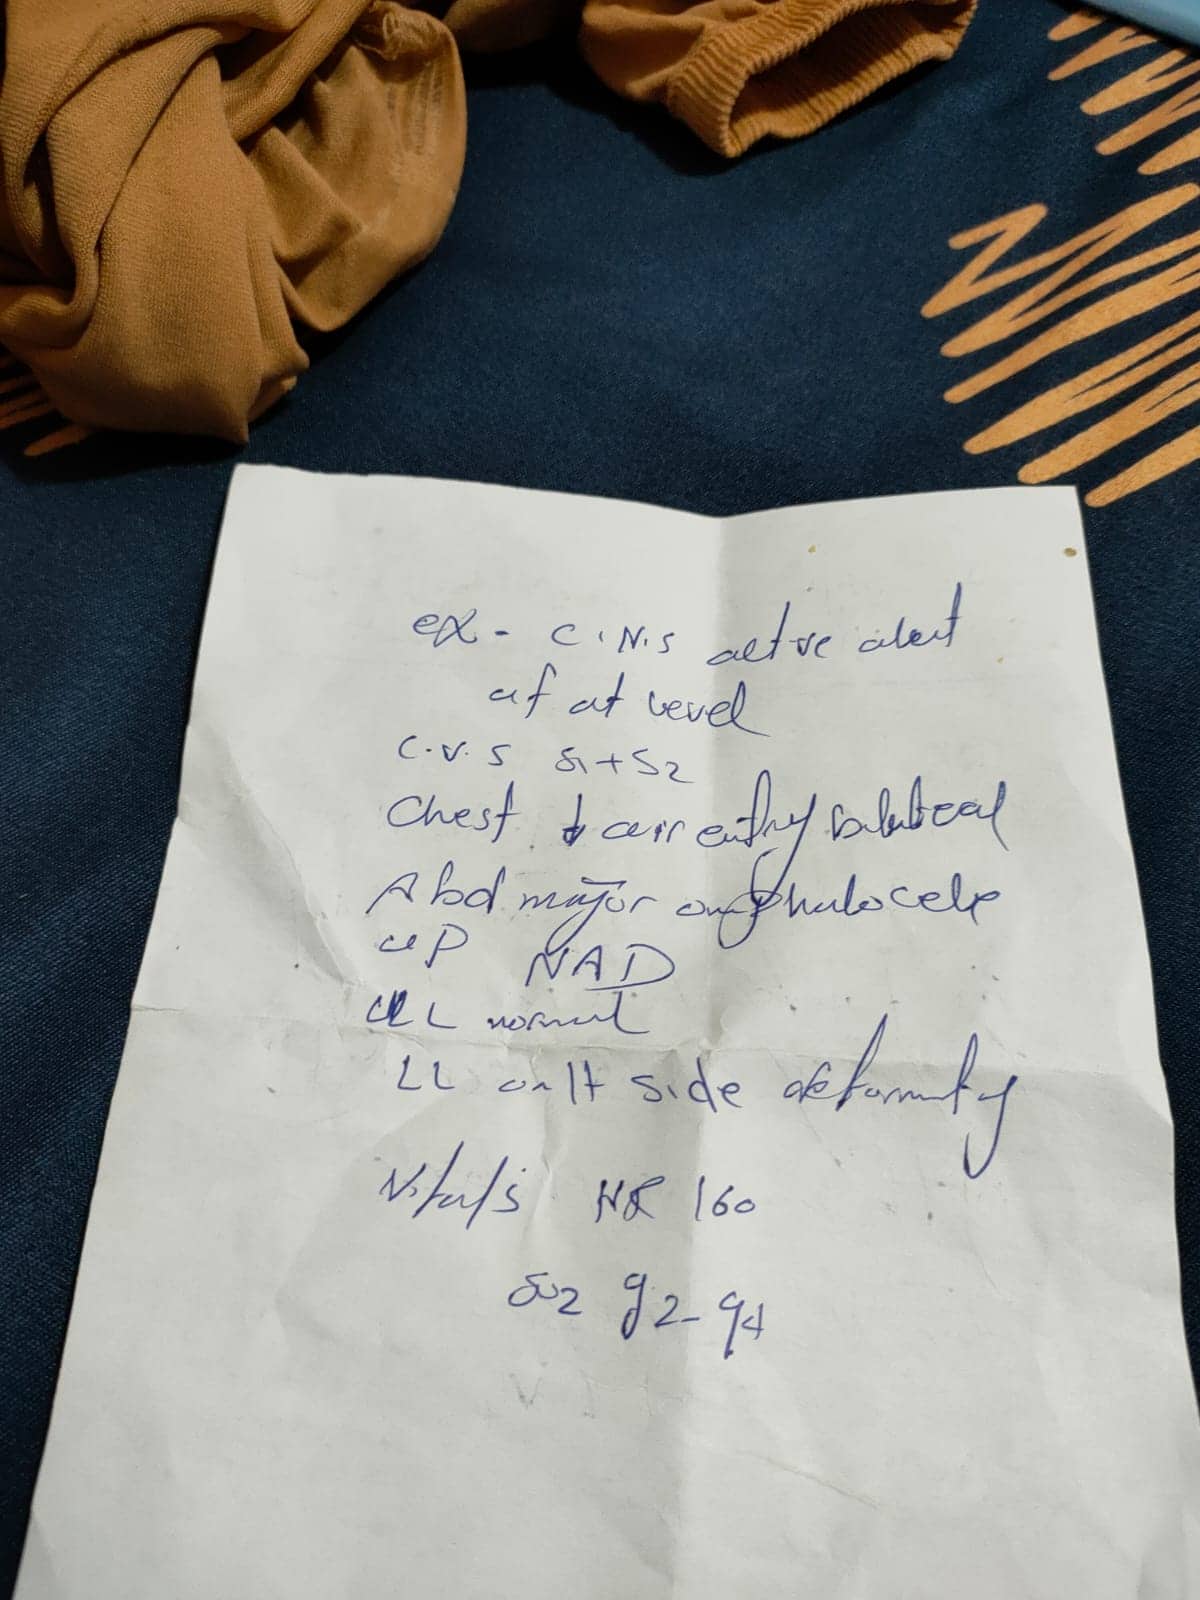 ex - C.N.S active alert
af at level
C.V.S S1+S2
Chest ↓ air entry bilateral
Abd major omphalocele
NAD
UL normal
LL on lt side deformity
Vitals HR 160
So2 92-94